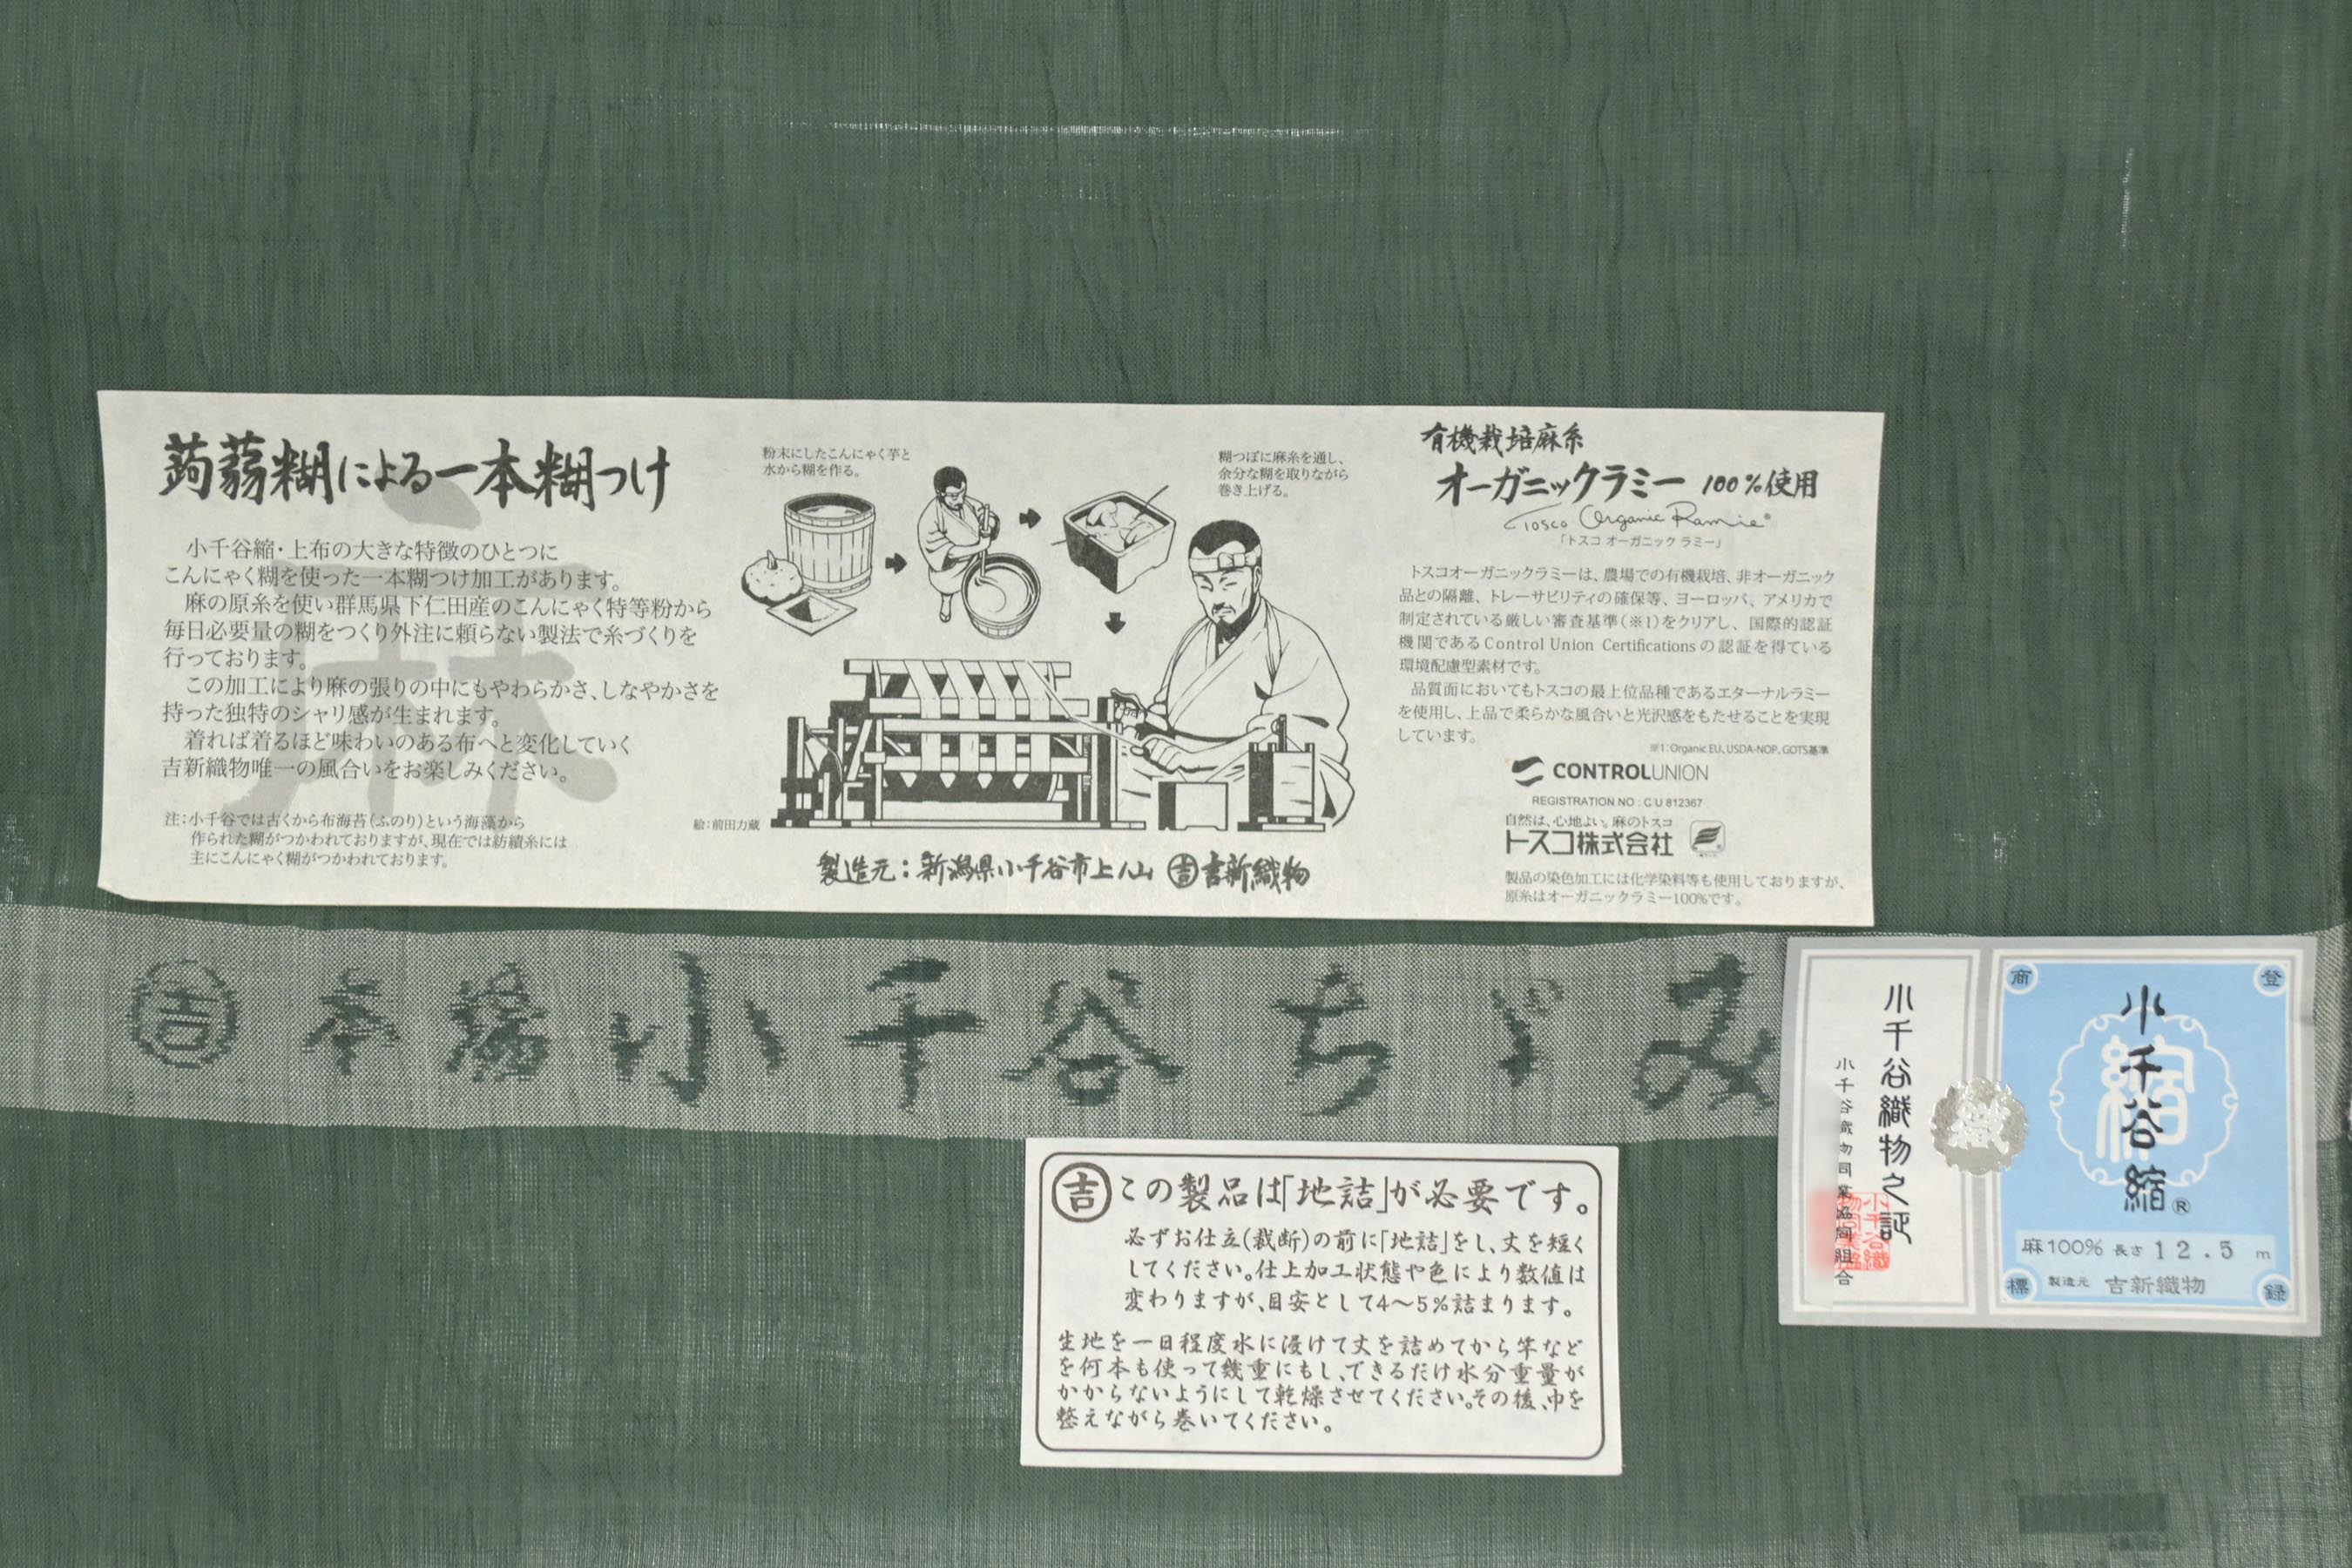 蒟蒻糊による一本糊つけ
小千谷縮・上布の大きな特徴のひとつに
こんにゃく糊を使った一本糊つけ加工があります。
麻の原糸を使い群馬県下仁田産のこんにゃく特等粉から
毎日必要量の糊をつくり外注に頼らない製法で糸づくりを
行っております。
この加工により麻の張りの中にもやわらかさ、しなやかさを
持った独特のシャリ感が生まれます。
着れば着るほど味わいのある布へと変化していく
吉新織物唯一の風合いをお楽しみください。
麻
注:小千谷では古くから布海苔(ふのり)という海藻から
作られた糊がつかわれておりますが、現在では紡績糸には
主にこんにゃく糊がつかわれております。
粉末にしたこんにゃく芋と
水から糊を作る。
糊つぼに麻糸を通し、
余分な糊を取りながら
巻き上げる。
絵:前田力蔵
製造元:新潟県小千谷市上ノ山 吉 吉新織物
有機栽培麻糸
オーガニックラミー 100%使用
Tosco Organic Ramie®
「トスコ オーガニック ラミー」
トスコオーガニックラミーは、農場での有機栽培、非オーガニック
品との隔離、トレーサビリティの確保等、ヨーロッパ、アメリカで
制定されている厳しい審査基準(※1)をクリアし、国際的認証
機関であるControl Union Certificationsの認証を得ている
環境配慮型素材です。
品質面においてもトスコの最上位品種であるエターナルラミー
を使用し、上品で柔らかな風合いと光沢感をもたせることを実現
しています。
※1:Organic EU、USDA-NOP、GOTS基準
CONTROLUNION
REGISTRATION NO : C U 812367
自然は、心地よい。麻のトスコ
トスコ株式会社
製品の染色加工には化学染料等も使用しておりますが、
原糸はオーガニックラミー100%です。
吉 本場小千谷ちぢみ
小千谷織物之証
小千谷織物同業協同組合
織
商
登
標
録
縮
小千谷縮®
麻100% 長さ 12.5 m
製造元 吉新織物
吉 この製品は「地詰」が必要です。
必ずお仕立(裁断)の前に「地詰」をし、丈を短く
してください。仕上加工状態や色により数値は
変わりますが、目安として4〜5%詰まります。
生地を一日程度水に浸けて丈を詰めてから竿など
を何本も使って幾重にもし、できるだけ水分重量が
かからないようにして乾燥させてください。その後、巾を
整えながら巻いてください。